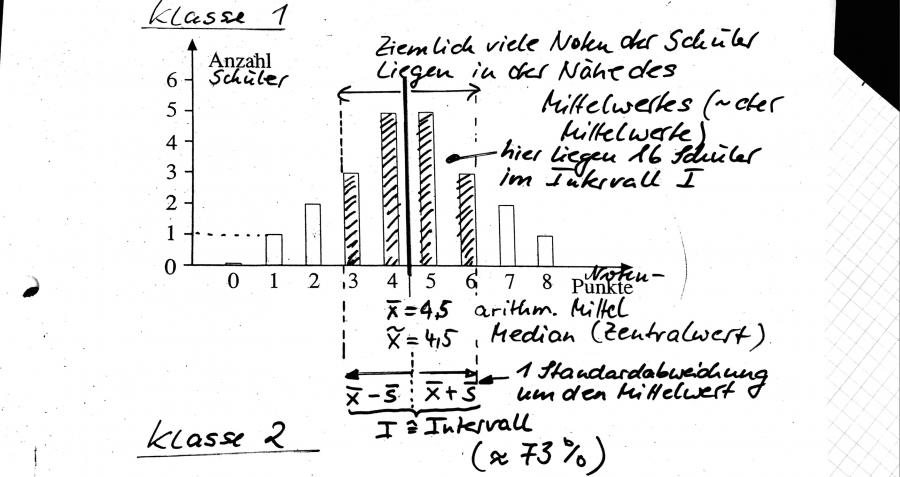 Klasse 1
Ziemlich viele Noten der Schüler
liegen in der Nähe des
Mittelwertes (~ der
Mittelwerte)
hier liegen 16 Schüler
im Intervall I
Anzahl
Schüler
6
5
4
3
2
1
0
0 1 2 3 4 5 6 7 8
Noten-
Punkte
x̄ = 4,5 arithm. Mittel
x̃ = 4,5 Median (Zentralwert)
1 Standardabweichung
um den Mittelwert
x̄ - s̄ x̄ + s̄
I ≙ Intervall
(≈ 73 %)
Klasse 2